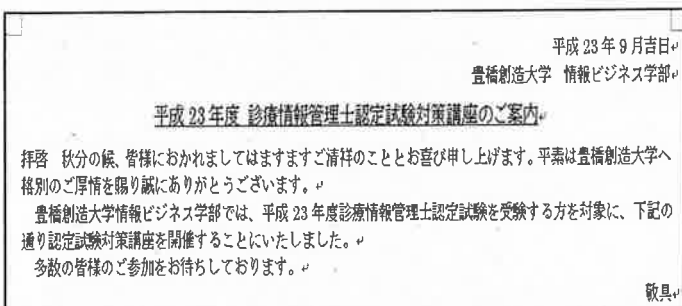 平成 23 年 9 月吉日
豊橋創造大学　情報ビジネス学部
平成 23 年度 診療情報管理士認定試験対策講座のご案内
拝啓　秋分の候、皆様におかれましてはますますご清祥のこととお喜び申し上げます。平素は豊橋創造大学へ
格別のご厚情を賜り誠にありがとうございます。
豊橋創造大学情報ビジネス学部では、平成 23 年度診療情報管理士認定試験を受験する方を対象に、下記の
通り認定試験対策講座を開催することにいたしました。
多数の皆様のご参加をお待ちしております。
敬具